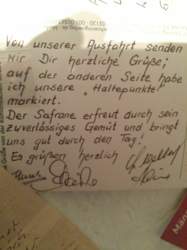 Von unserer Ausfahrt senden
wir Dir herzliche Grüße;
auf der anderen Seite habe
ich unsere „Haltepunkte"
markiert.
Der Safrane erfreut durch sein
zuverlässiges Gemüt und bringt
uns gut durch den Tag!
Es grüßen herzlich